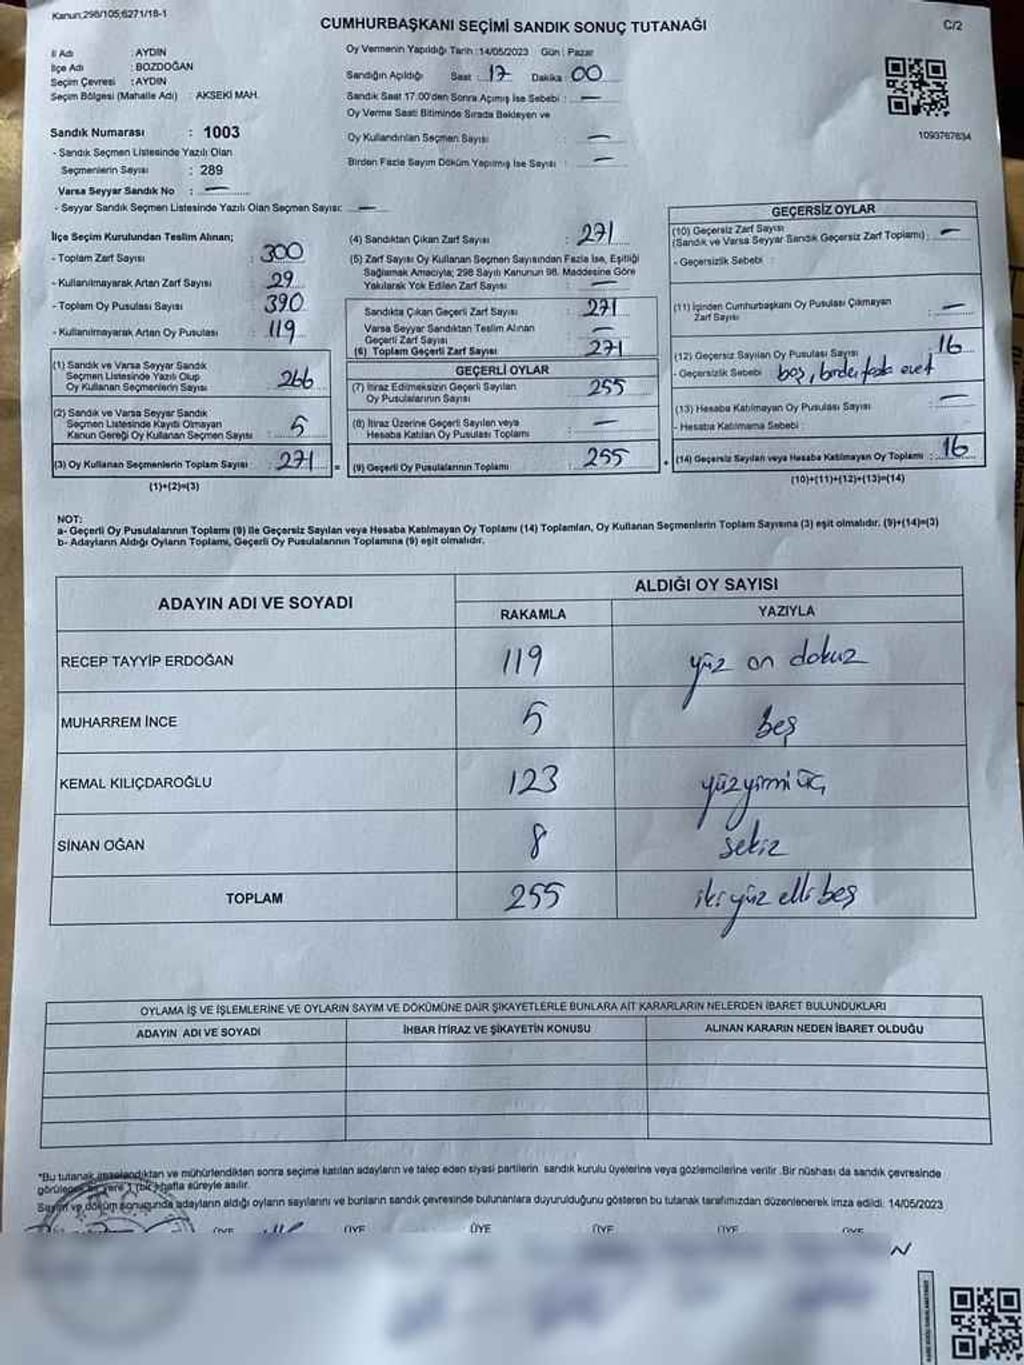 Kanun;298/105;6271/18-1
CUMHURBAŞKANI SEÇİMİ SANDIK SONUÇ TUTANAĞI
C/2
İl Adı : AYDIN
İlçe Adı : BOZDOĞAN
Seçim Çevresi : AYDIN
Seçim Bölgesi (Mahalle Adı) : AKSEKİ MAH.
Sandık Numarası : 1003
- Sandık Seçmen Listesinde Yazılı Olan
Seçmenlerin Sayısı : 289
Varsa Seyyar Sandık No : —
- Seyyar Sandık Seçmen Listesinde Yazılı Olan Seçmen Sayısı: —
Oy Vermenin Yapıldığı Tarih : 14/05/2023 Gün : Pazar
Sandığın Açıldığı Saat : 17 Dakika : 00
Sandık Saat 17.00'den Sonra Açılmış İse Sebebi : —
Oy Verme Saati Bitiminde Sırada Bekleyen ve
Oy Kullandırılan Seçmen Sayısı : —
Birden Fazla Sayım Döküm Yapılmış İse Sayısı : —
1093767634
İlçe Seçim Kurulundan Teslim Alınan;
- Toplam Zarf Sayısı : 300
- Kullanılmayarak Artan Zarf Sayısı : 29
- Toplam Oy Pusulası Sayısı : 390
- Kullanılmayarak Artan Oy Pusulası : 119
(1) Sandık ve Varsa Seyyar Sandık
Seçmen Listesinde Yazılı Olup
Oy Kullanan Seçmenlerin Sayısı : 266
(2) Sandık ve Varsa Seyyar Sandık
Seçmen Listesinde Kaydı Olmayan
Kanun Gereği Oy Kullanan Seçmen Sayısı : 5
(3) Oy Kullanan Seçmenlerin Toplam Sayısı : 271 =
(1)+(2)=(3)
(4) Sandıktan Çıkan Zarf Sayısı : 271
(5) Zarf Sayısı Oy Kullanan Seçmen Sayısından Fazla İse, Eşitliği
Sağlamak Amacıyla; 298 Sayılı Kanunun 98. Maddesine Göre
Yakılarak Yok Edilen Zarf Sayısı : —
Sandıkta Çıkan Geçerli Zarf Sayısı : 271
Varsa Seyyar Sandıktan Teslim Alınan
Geçerli Zarf Sayısı : —
(6) Toplam Geçerli Zarf Sayısı : 271
GEÇERLİ OYLAR
(7) İtiraz Edilmeksizin Geçerli Sayılan
Oy Pusulalarının Sayısı : 255
(8) İtiraz Üzerine Geçerli Sayılan veya
Hesaba Katılan Oy Pusulası Toplamı : —
(9) Geçerli Oy Pusulalarının Toplamı : 255 +
GEÇERSİZ OYLAR
(10) Geçersiz Zarf Sayısı
(Sandık ve Varsa Seyyar Sandık Geçersiz Zarf Toplamı) : —
- Geçersizlik Sebebi :
(11) İçinden Cumhurbaşkanı Oy Pusulası Çıkmayan
Zarf Sayısı : —
(12) Geçersiz Sayılan Oy Pusulası Sayısı : 16
- Geçersizlik Sebebi : boş, birden fazla evet
(13) Hesaba Katılmayan Oy Pusulası Sayısı : —
- Hesaba Katılmama Sebebi :
(14) Geçersiz Sayılan veya Hesaba Katılmayan Oy Toplamı : 16
(10)+(11)+(12)+(13)=(14)
NOT:
a- Geçerli Oy Pusulalarının Toplamı (9) ile Geçersiz Sayılan veya Hesaba Katılmayan Oy Toplamı (14) Toplamları, Oy Kullanan Seçmenlerin Toplam Sayısına (3) eşit olmalıdır. (9)+(14)=(3)
b- Adayların Aldığı Oyların Toplamı, Geçerli Oy Pusulalarının Toplamına (9) eşit olmalıdır.
ADAYIN ADI VE SOYADI ALDIĞI OY SAYISI
RAKAMLA YAZIYLA
RECEP TAYYİP ERDOĞAN 119 yüz on dokuz
MUHARREM İNCE 5 beş
KEMAL KILIÇDAROĞLU 123 yüzyirmi üç
SİNAN OĞAN 8 sekiz
TOPLAM 255 iki yüz elli beş
OYLAMA İŞ VE İŞLEMLERİNE VE OYLARIN SAYIM VE DÖKÜMÜNE DAİR ŞİKAYETLERLE BUNLARA AİT KARARLARIN NELERDEN İBARET BULUNDUKLARI
ADAYIN ADI VE SOYADI İHBAR İTİRAZ VE ŞİKAYETİN KONUSU ALINAN KARARIN NEDEN İBARET OLDUĞU
*Bu tutanak imzalandıktan ve mühürlendikten sonra seçime katılan adayların ve talep eden siyasi partilerin sandık kurulu üyelerine veya gözlemcilerine verilir. Bir nüshası da sandık çevresinde
görülecek bir yere 1 (bir) hafta süreyle asılır.
Sayım ve döküm sonucunda adayların aldığı oyların sayılarını ve bunların sandık çevresinde bulunanlara duyurulduğunu gösteren bu tutanak tarafımızdan düzenlenerek imza edildi. 14/05/2023
ÜYE ÜYE ÜYE ÜYE ÜYE ÜYE
N